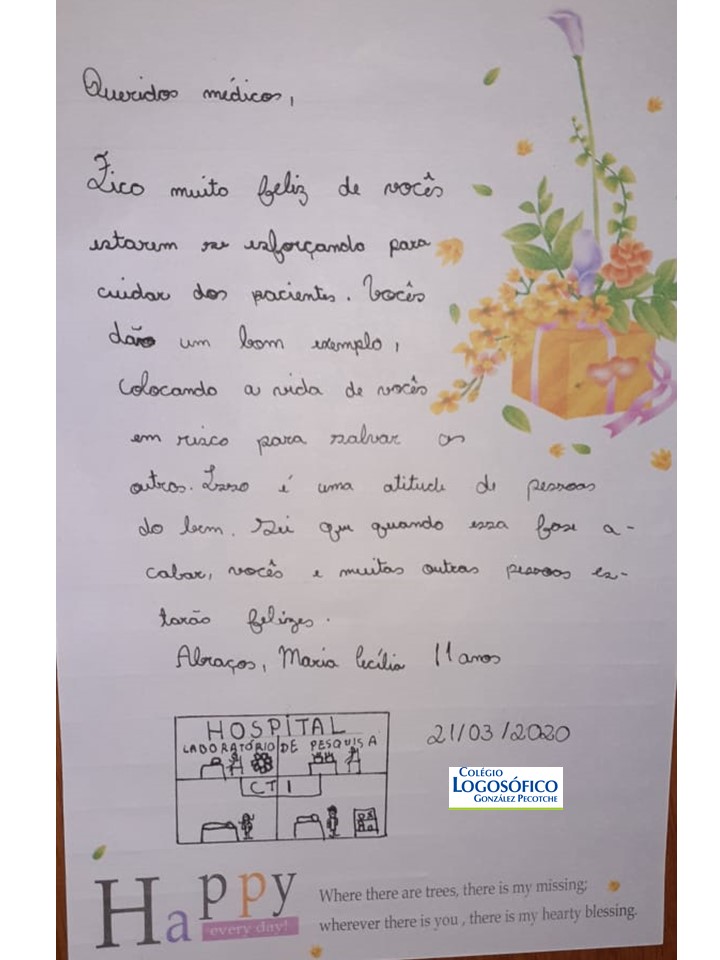 Queridos médicos,
Fico muito feliz de vocês
estarem se esforçando para
cuidar dos pacientes. Vocês
dão um bom exemplo,
colocando a vida de vocês
em risco para salvar os
outros. Isso é uma atitude de pessoas
do bem. Sei que quando essa fase a-
cabar, vocês e muitas outras pessoas es-
tarão felizes.
Abraços, Maria Cecília 11 anos
21/03/2020
HOSPITAL
LABORATÓRIO DE PESQUISA
CTI
COLÉGIO
LOGOSÓFICO
GONZÁLEZ PECOTCHE
Happy
every day!
Where there are trees, there is my missing;
wherever there is you , there is my hearty blessing.